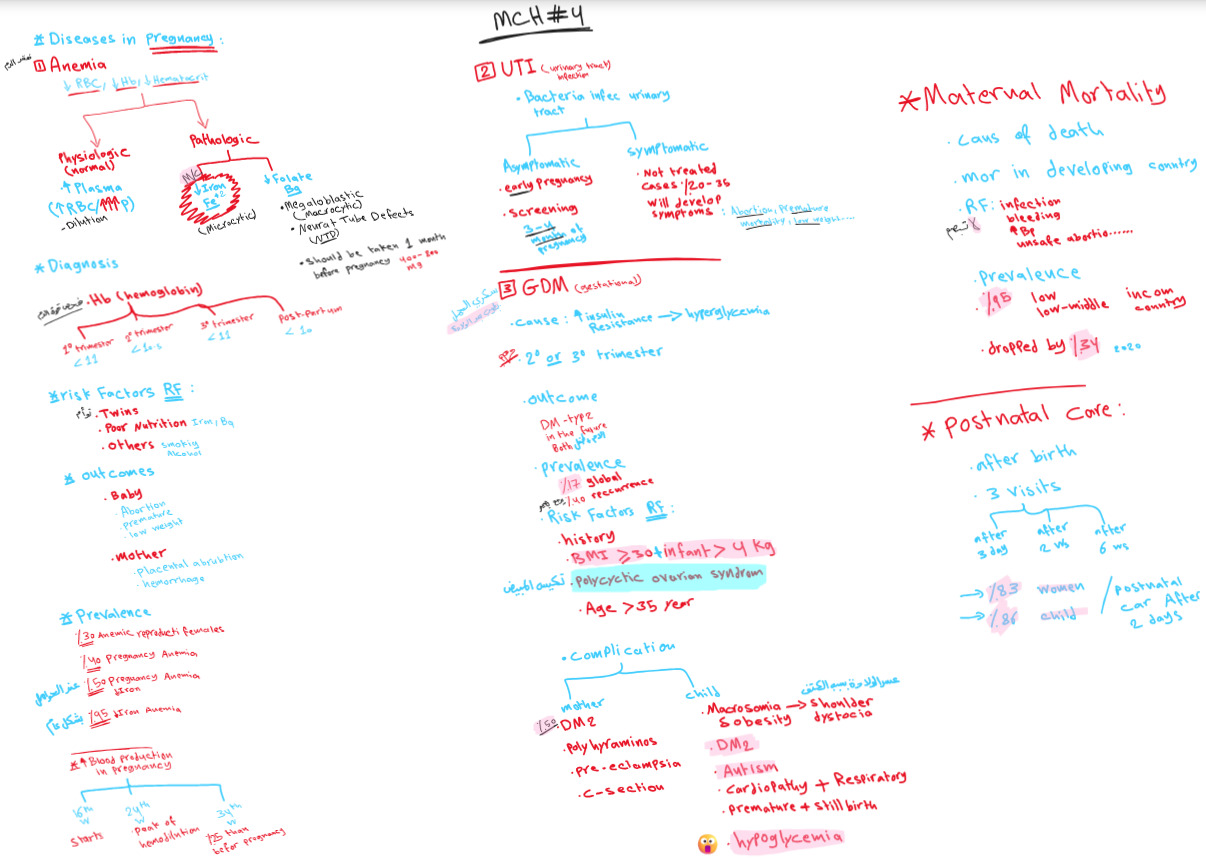 MCH#4
* Diseases in pregnancy :
1 Anemia
↓ RBC, ↓ Hb, ↓ Hematocrit
Physiologic
(normal)
↑ Plasma
(↑RBC/↑↑↑P)
- Dilution
Pathologic
M/C
↓ Iron
Fe+2
(Microcytic)
↓ Folate
B9
• Megaloblastic
(Macrocytic)
• Neural Tube Defects
(NTD)
• should be taken 1 month
before pregnancy 400-800
mg
* Diagnosis
• Hb (hemoglobin)
1° trimester
<11
2° trimester
<10.5
3° trimester
<11
Post-Partum
<10
* risk Factors RF :
• Twins توأم
• Poor Nutrition Iron, B9
• others smokig
Alcohol
* outcomes
• Baby
• Abortion
• premature
• low weight
• mother
• placental abrubtion
• hemorrhage
* Prevalence
%30 Anemic reproducti females
%40 Pregnancy Anemia
%50 Pregnancy Anemia
↓Iron
عند الحوامل
%95 ↓Iron Anemia
بشكل عام
* ↑ Blood production
in pregnancy
16th
w
starts
24th
w
• peak of
hemodilution
34th
w
%25 than
befor pregnancy
2 UTI (urinary tract)
infection
• Bacteria infec urinary
tract
Asymptomatic
• early Pregnancy
• screening
3-4
month of
pregnancy
symptomatic
• Not treated
cases %20-35
will develop
symptoms : Abortion, Premature
mortality, low weight....
3 GDM (gestational)
سكري الحمل
• cause : ↑ insulin
Resistance → hyperglycemia
• 2° or 3° trimester
• outcome
DM-typ2
in the future
Both
• prevalence
%17 global
%40 reccurrence
• Risk Factors RF :
• history
• BMI ≥30 + infant > 4 Kg
• polycyctic ovarian syndrom
تكيس المبيض
• Age >35 year
• complication
mother
%50 DM2
• polyhyraminos
• pre-eclampsia
• c-section
child
• Macrosomia → shoulder
sobesity dystocia
عسر الولادة بسبب الكتف
• DM2
• Autism
• cardiopathy + Respiratory
• premature + still birth
• hypoglycemia
* Maternal Mortality
• caus of death
• mor in developing country
• RF: infection
bleeding
↑ Bp
unsafe abortio......
• prevalence
%95 low
low-middle incom
country
• dropped by %34 2020
* Postnatal care :
• after birth
• 3 visits
after
3 day
after
2 ws
after
6 ws
→ %83 women
→ %86 child
/ postnatal
car After
2 days